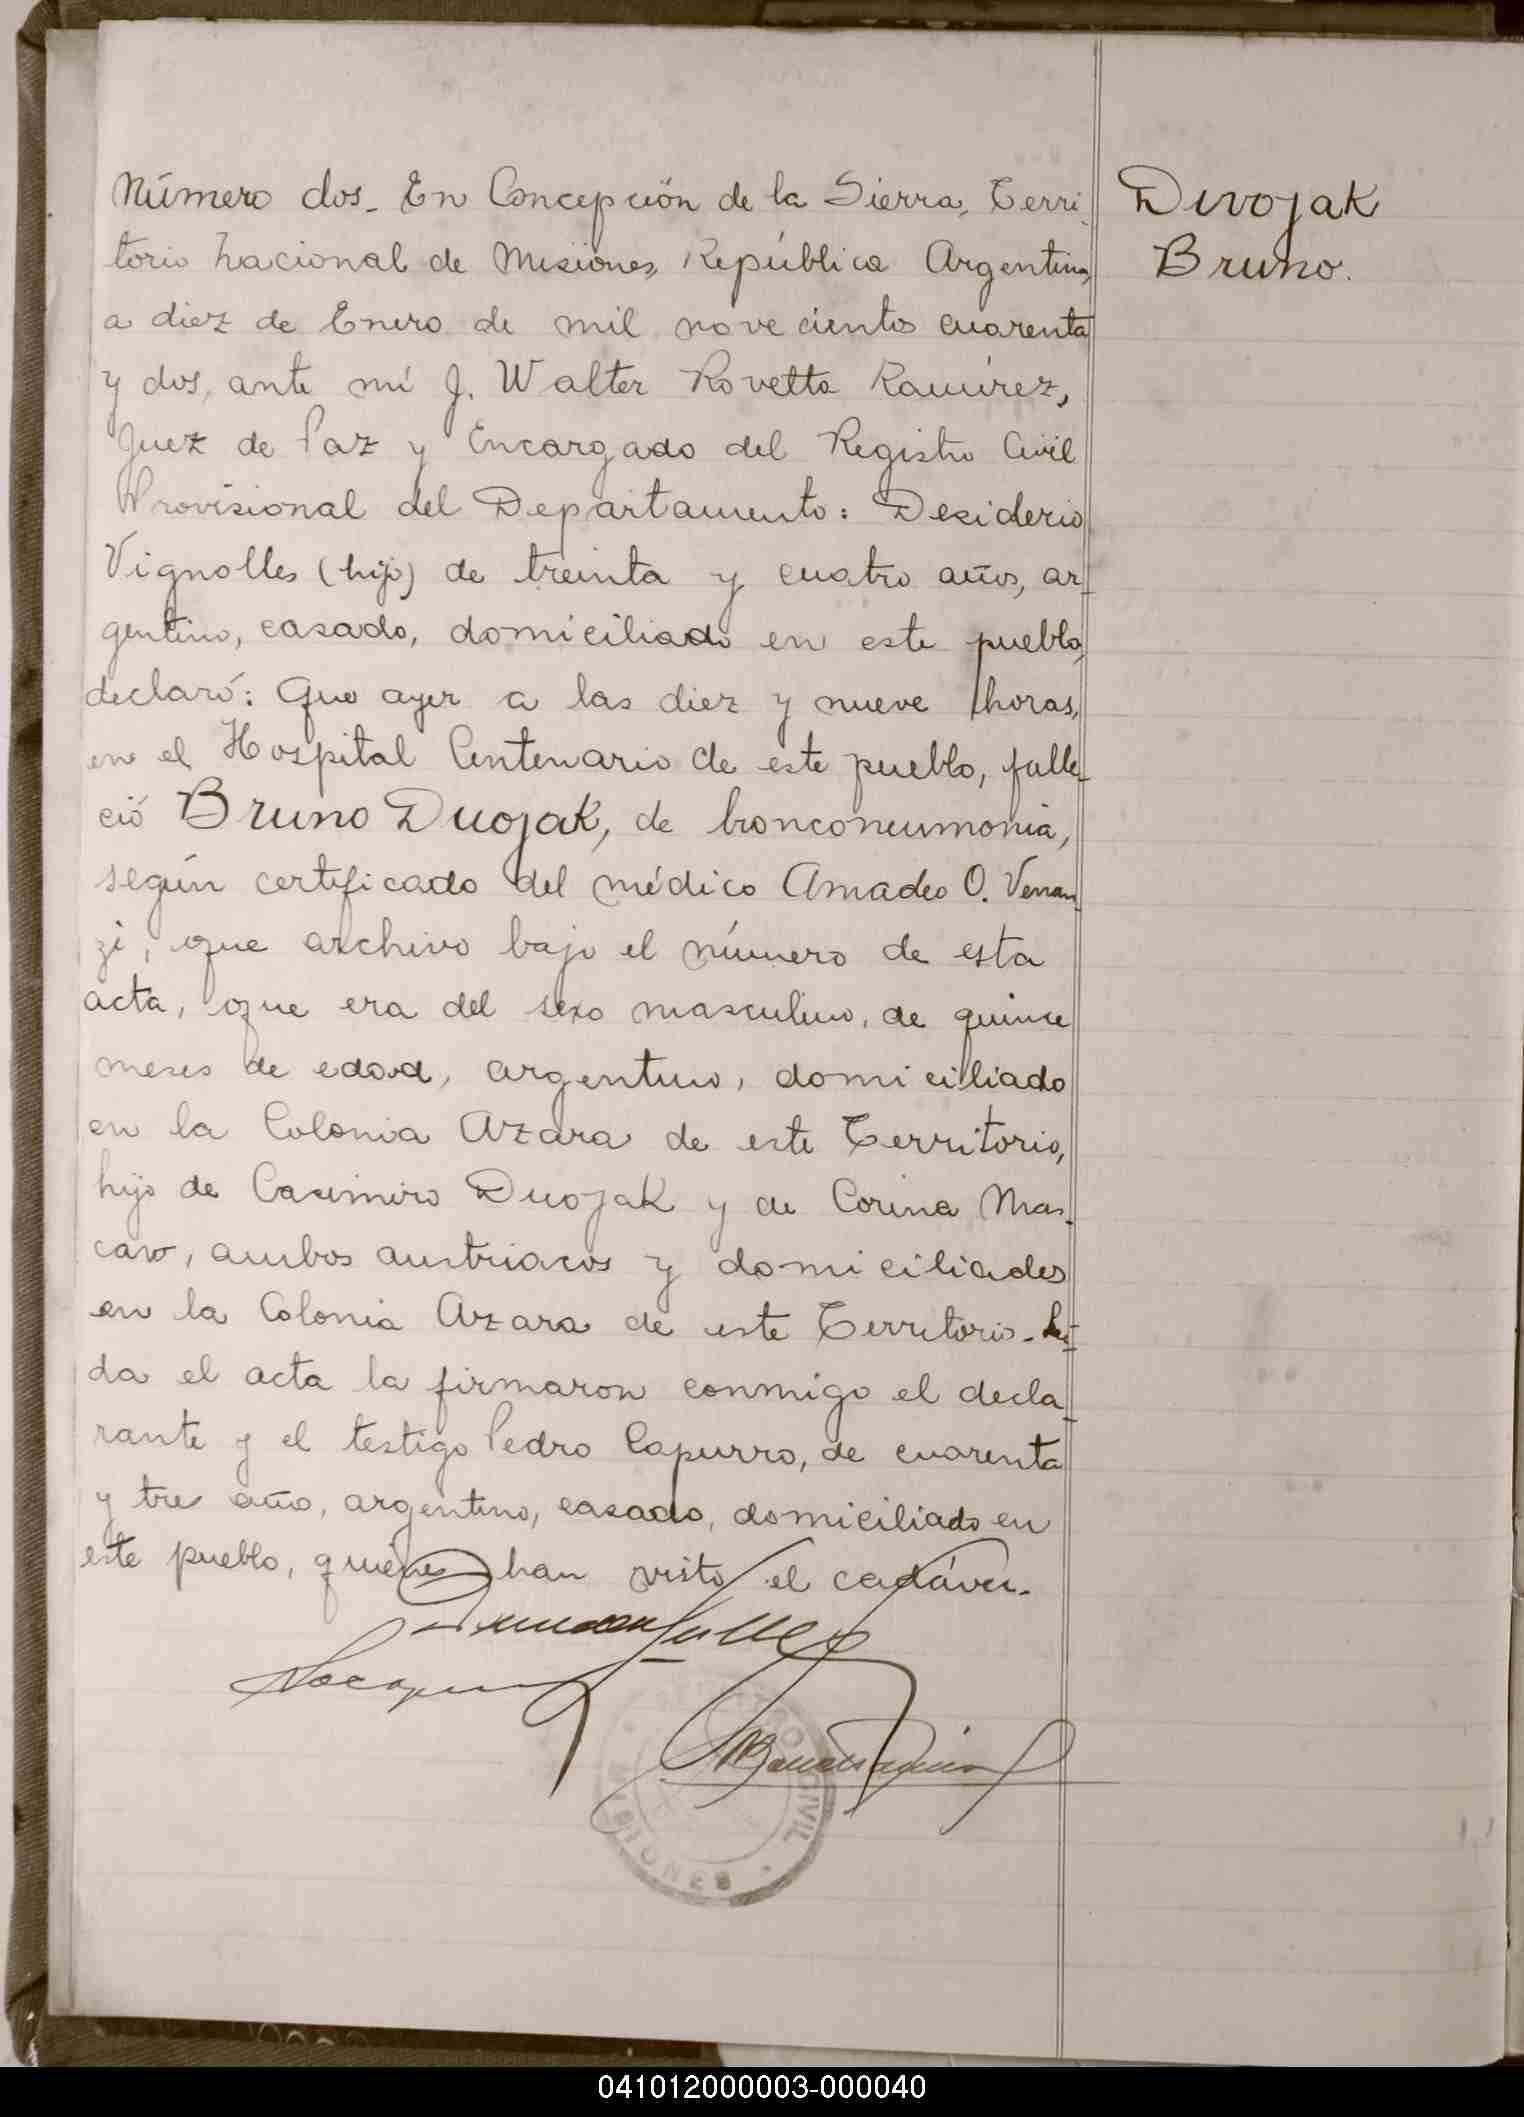 Número dos_ En Concepción de la Sierra, Terri_
torio Nacional de Misiones, República Argentina,
a diez de Enero de mil novecientos cuarenta
y dos, ante mí J. Walter Rovetta Ramírez,
Juez de Paz y Encargado del Registro Civil
Provisional del Departamento: Desiderio
Vignolles (hijo) de treinta y cuatro años, ar_
gentino, casado, domiciliado en este pueblo,
declaró: Que ayer a las diez y nueve horas,
en el Hospital Centenario de este pueblo, falle_
ció Bruno Duojak, de bronconeumonia,
según certificado del médico Amadeo O. Venan_
zi, que archivo bajo el número de esta
acta, que era del sexo masculino, de quince
meses de edad, argentino, domiciliado
en la Colonia Azara de este Territorio,
hijo de Casimiro Duojak y de Corina Mas_
caro, ambos austriacos y domiciliados
en la Colonia Azara de este Territorio_ Leí_
da el acta la firmaron conmigo el decla_
rante y el testigo Pedro Capurro, de cuarenta
y tres año, argentino, casado, domiciliado en
este pueblo, quiénes han visto el cadáver.
Divojak
Bruno.
REGISTRO CIVIL
MISIONES
041012000003-000040